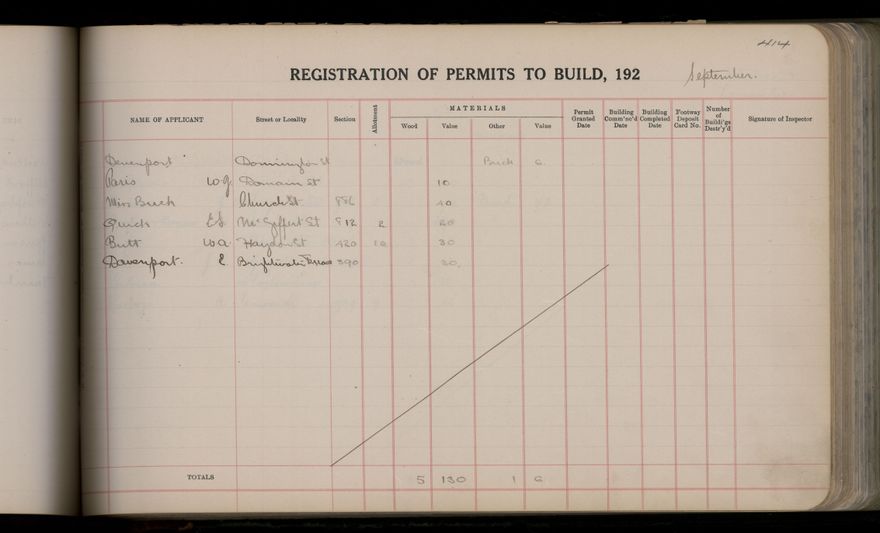 414
REGISTRATION OF PERMITS TO BUILD, 192 September.
NAME OF APPLICANT Street or Locality Section Allotment MATERIALS Wood Value Other Value Permit Granted Date Building Comm'nc'd Date Building Completed Date Footway Deposit Card No. Number of Build'gs Destr'y'd Signature of Inspector
Davenport Donnington St Brick 6
Paris W.J. Domain St 10
Miss Buck Church St 886 40
Quick E.S. McGeffert St 812 2 20
Butt W.A. Haydon St 420 12 30
Davenport. E. Brightwater Terrace 390 30.
TOTALS 5 130 1 6